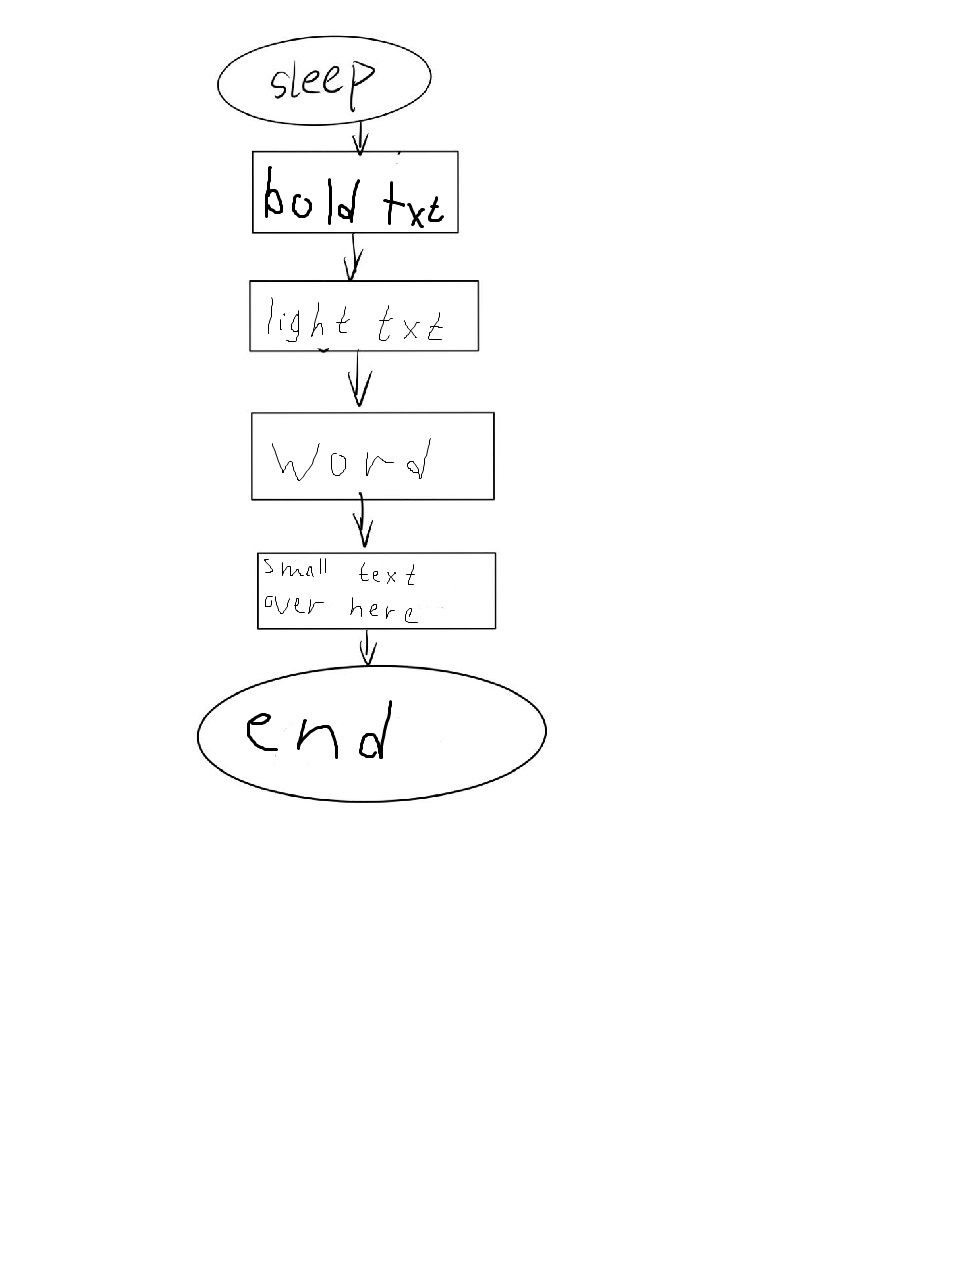 sleep
bold txt
light txt
Word
small text
over here
end